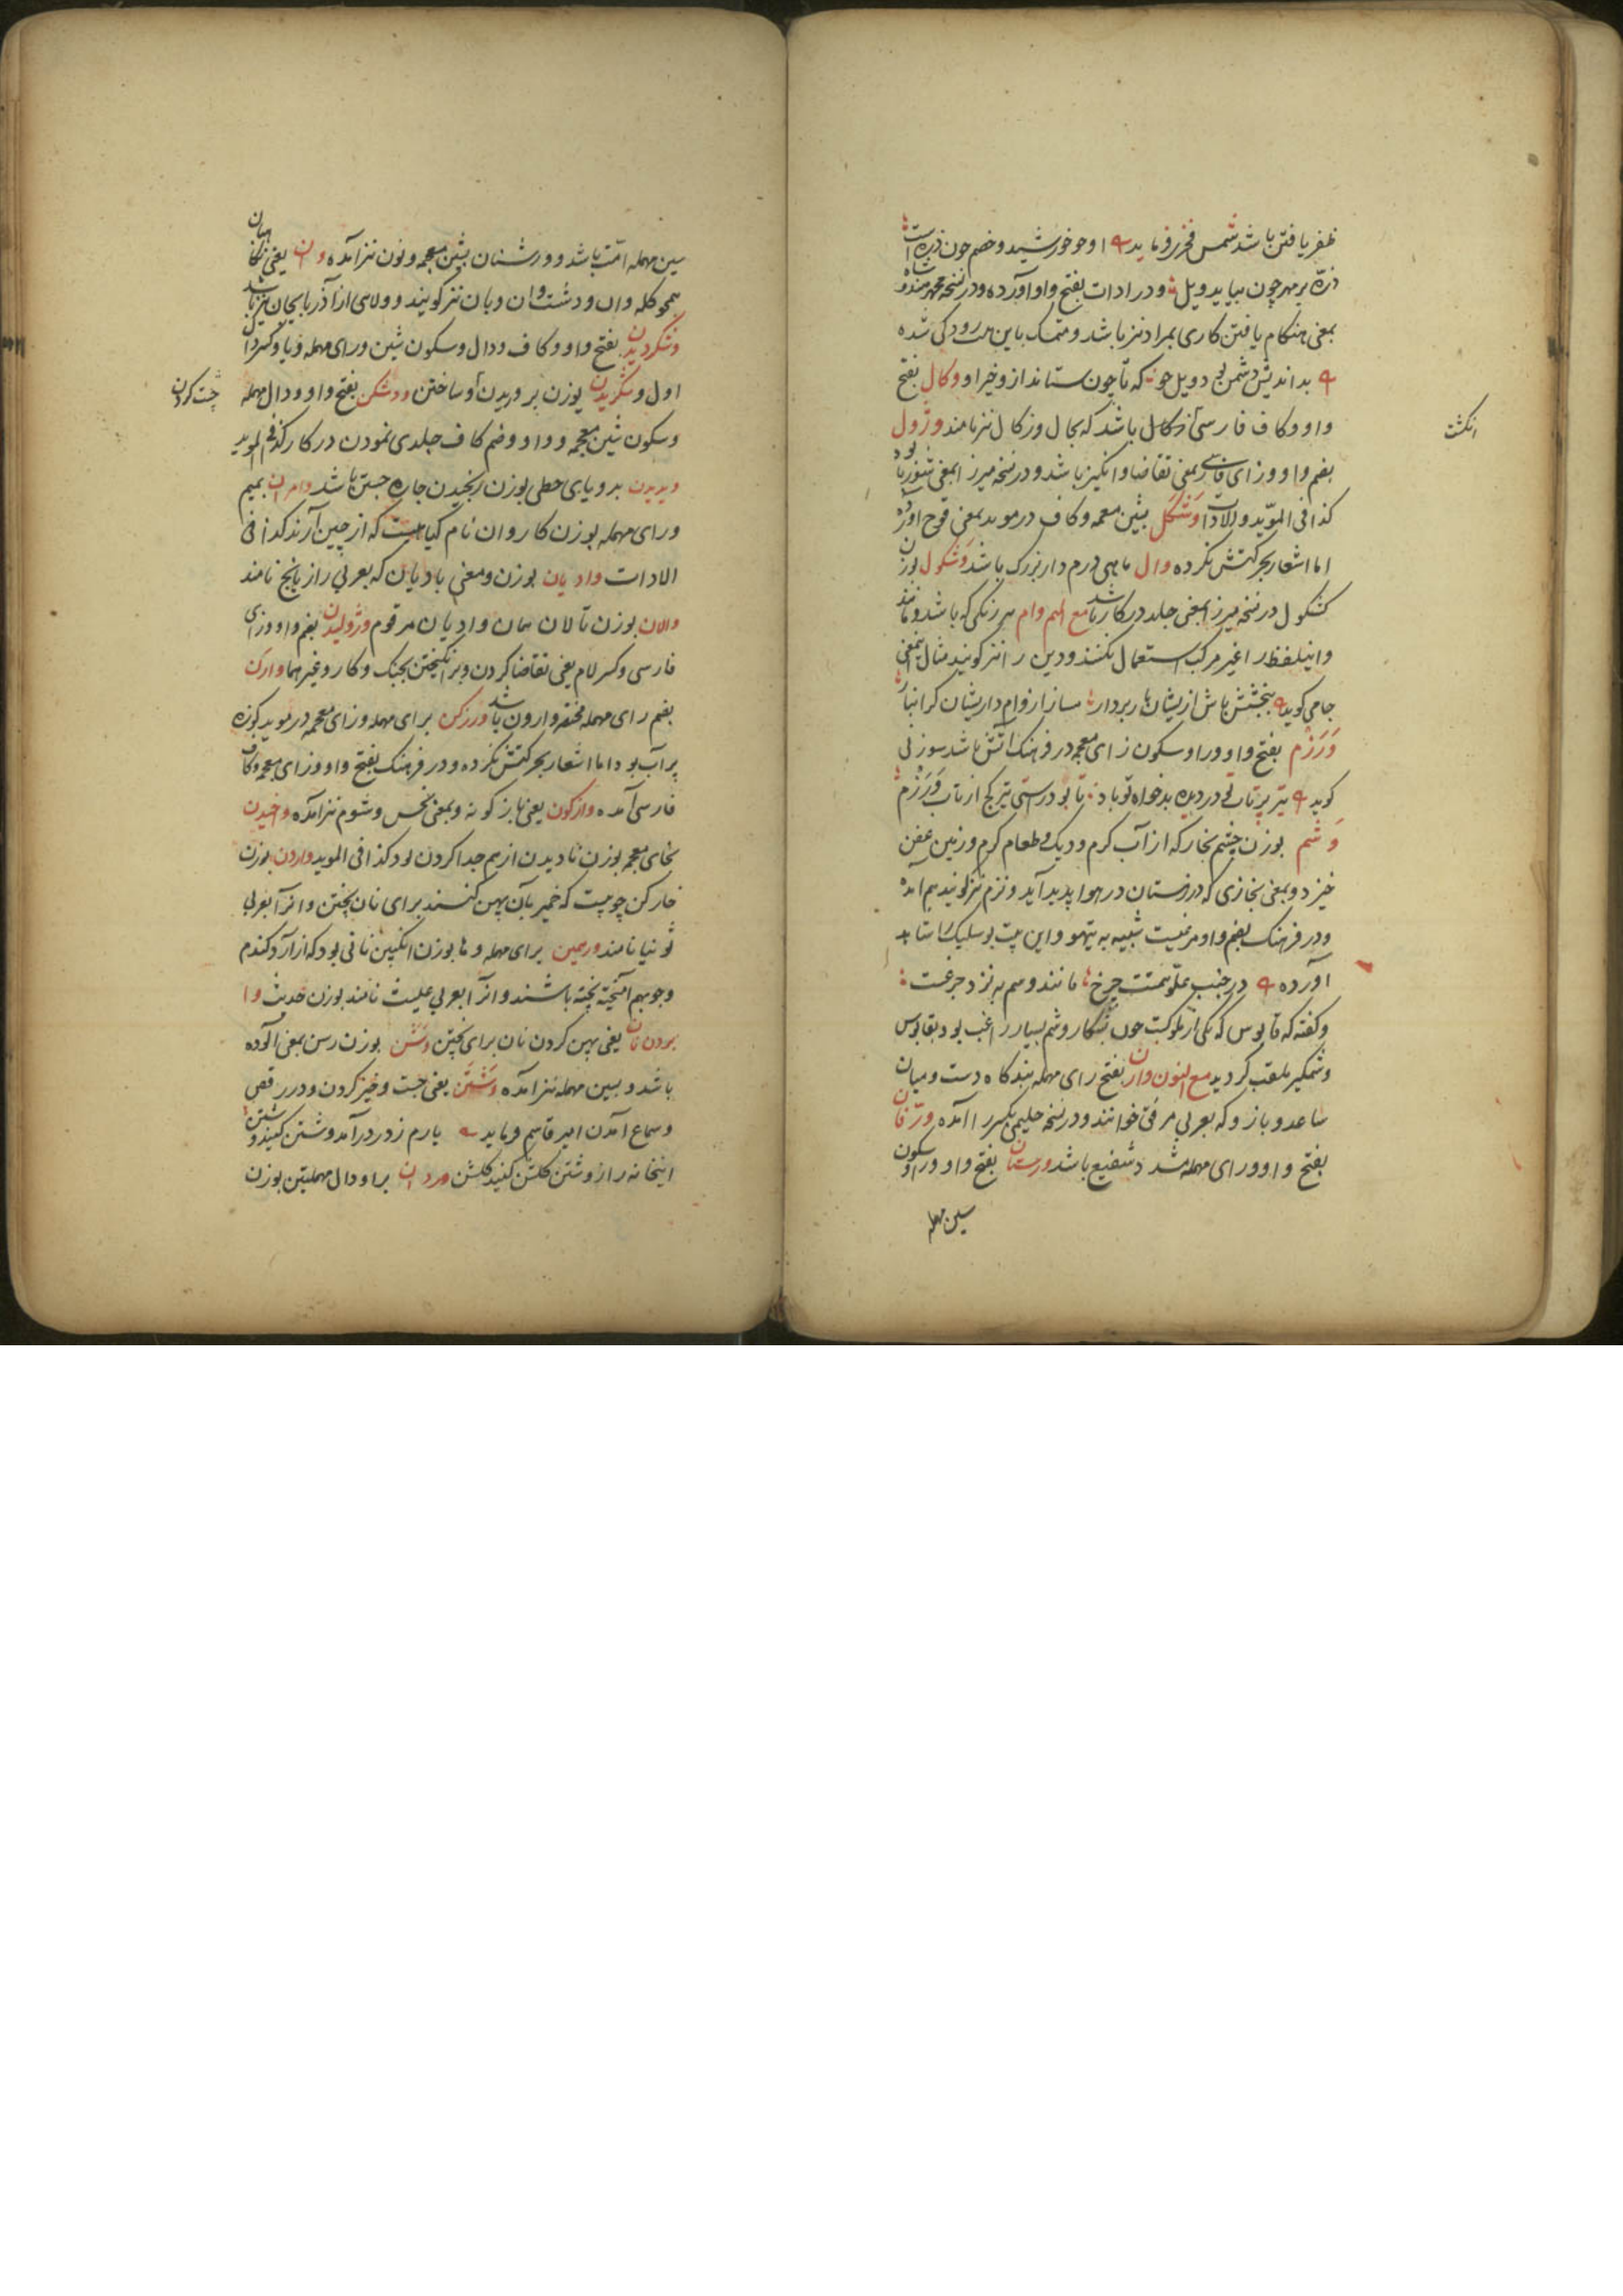 ظفر یافتن باشد شمس فخری فرماید او چو خورشید و خصم چون ذره است
ذره بر مهر چون بیابد ویل و در ادات بفتح واو آورده و در نسخه محمد هندوشاه
بمعنی هنکام یافتن کاری بمراد نیز باشد و متمسک باین بیت رودکی شده
بد اندیش دشمن بد ویل جو که تا چون ستاند ازو چیز او وکال بفتح
واو و کاف فارسی زکال باشد که بجال و زکال نیز نامند وژول
انکشت
بضم واو و زای فارسی بمعنی تقاضا و انکیز باشد و در نسخه میرزا بمعنی شور باشد
کذا فی المؤید و الادات وشکل بشین معجمه و کاف در موید بمعنی قوچ آورده
اما اشعار بحرکتش نکرده وال ماهی درم دار بزرک باشد وشکول بوزن
کشکول در نسخه میرزا بمعنی جلد در کار باشد مع المیم وام هر رنکی که باشد و مانند
و اینلفظ را غیر مرکب استعمال نکنند و دین را نیز کویند مثال این معنی
جامی کوید ببخشش باش ازیشان بار بردار مساز از وام داریشان کرانبار
ورزم بفتح واو و را و سکون زای معجمه در فرهنک آتش باشد سوزنی
کوید تیر پرتاب تو در دیده بدخواه تو باد تا بود راستی تیر کج از تاب ورزم
وشم بوزن چشم بخار که از آب کرم و دیک و طعام کرم و زمین عفن
خیزد و بمعنی بخاری که در زمستان در هوا پدید آید و نزم نیز کویند هم آمده
و در فرهنک بضم واو مرغیست شبیه به تیهو و این بیت بوسلیک را شاهد
آورده در جنب علو همتت چرخ مانند وشم به نزد چرغست
و کفته که قابوس که یکی از ملوکست چون بشکار وشم بسیار راغب بود بقابوس
وشمکیر ملقب کردید مع النون وارن بفتح رای مهمله بندکاه دست و میان
ساعد و بازو که بعربی مرفق خوانند و در نسخه حلیمی بکسر را آمده ورفان
بفتح واو و رای مهمله مشدد شفیع باشد ورستان بفتح واو و را و سکون
سین مهمله
سین مهمله امت باشد و ورشنان بشین معجمه و نون نیز آمده وان یعنی نکاهبان
همچو کله وان و دشت وان و بان نیز کویند و ولایتی از آذربایجان نیز باشد
وشکردیدن بفتح واو و کاف و دال و سکون شین و رای مهمله و یا و کسر دال
اول و شکریدن بوزن پروریدن و ساختن ودشکن بفتح واو و دال مهمله
چست کردن
و سکون شین معجمه و واو و ضم کاف جلدی نمودن در کار کذا فی الموید
ویدیدن بدو یای حطی بوزن رنجیدن چاره جستن باشد وامران بمیم
و رای مهمله بوزن کاروان نام کیاهیست که از چین آرند کذا فی
الادات وادیان بوزن و معنی بادیان که بعربی رازیانج نامند
والان بوزن تالان همان وادیان مرقوم وژولیدن بضم واو و زای
فارسی و کسر لام یعنی تقاضا کردن و برانکیختن بجنک و کار و غیرهما وارن
بضم رای مهمله مختصر وارون باشد ورزکن برای مهمله و زای معجمه در موید کوزه
پر آب بود اما اشعار بحرکتش نکرده و در فرهنک بفتح واو و زای معجمه و کاف
فارسی آمده واژکون یعنی باژکونه و بمعنی نحس و شوم نیز آمده واخیدن
بخای معجمه بوزن نادیدن از هم جدا کردن بود کذا فی الموید واردن بوزن
خارکن چوبیست که خمیر بآن پهن کنند برای نان پختن و انرا بعربی
ثوبنیا نامند ورهمین برای مهمله و ها بوزن انکبین نانی بود که از آرد کندم
و جو بهم آمیخته پخته باشند و انرا بعربی علیث نامند بوزن حدیث وا
بردن نان یعنی پهن کردن نان برای پختن وشن بوزن رسن بمعنی آلوده
باشد و بسین مهمله نیز آمده وشتن یعنی جست و خیز کردن و در رقص
و سماع آمدن امیر قاسم فرماید یارم ز در درآمد وشتن کنید وشتن
اینخانه را ز وشتن کلشن کنید کلشن وردان برا و دال مهملتین بوزن